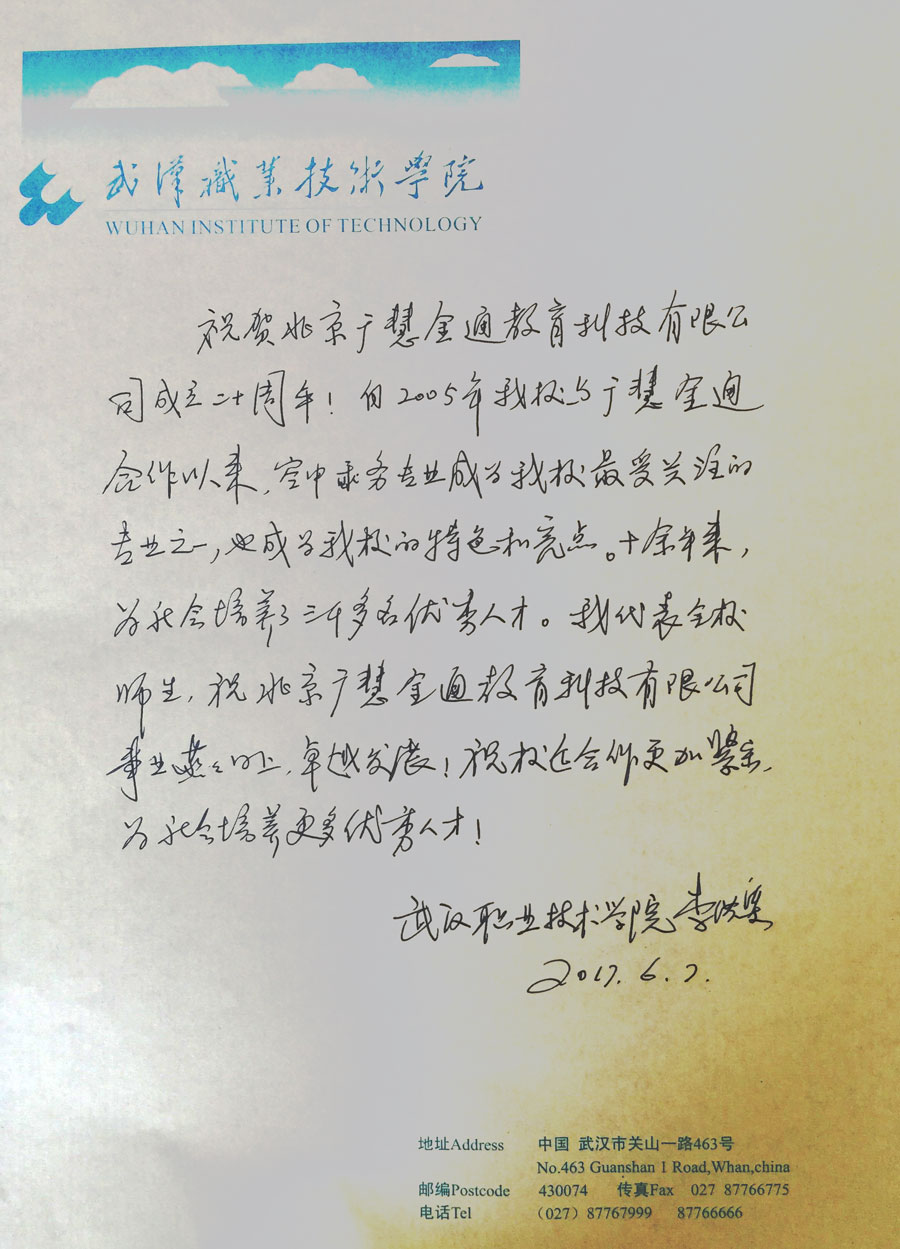 武漢職業技術學院
WUHAN INSTITUTE OF TECHNOLOGY
祝贺北京广慧金通教育科技有限公
司成立二十周年！自2005年我校与广慧金通
合作以来，空中乘务专业成为我校最受关注的
专业之一，也成为我校的特色和亮点。十余年来，
为社会培养了三千多名优秀人才。我代表全校
师生，祝北京广慧金通教育科技有限公司
事业蒸蒸日上，卓越发展！祝校企合作更加紧密，
为社会培养更多优秀人才！
武汉职业技术学院 李洪渠
2017.6.7.
地址Address 中国 武汉市关山一路463号
No.463 Guanshan I Road,Whan,china
邮编Postcode 430074 传真Fax 027 87766775
电话Tel （027）87767999 87766666